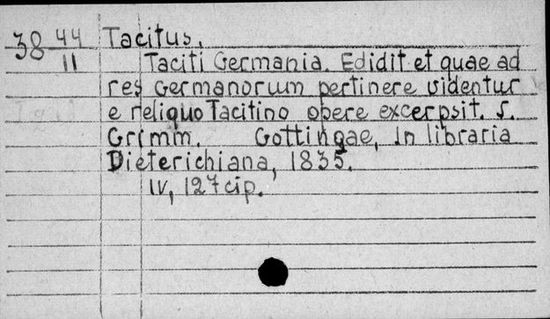 38 44 Tacitus.
11 Taciti Germania. Edidit et quae ad
res Germanorum pertinere videntur
e reliquo Tacitino opere excerpsit. J.
Grimm. Gottingae, In libraria
Dieterichiana, 1835.
IV, 127 cip.